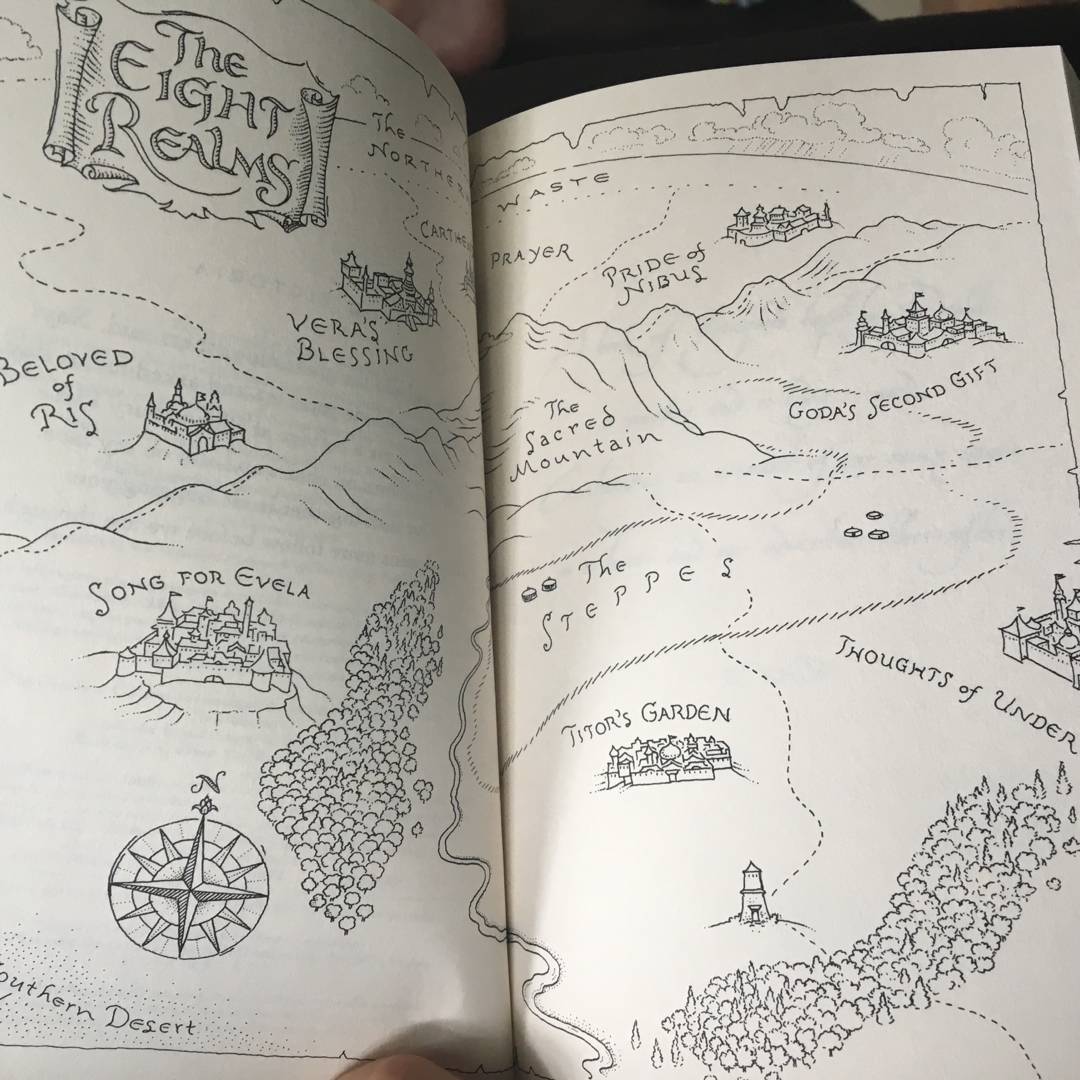 The
EIGHT
REALMS
The
NORTHER
WASTE
CARTHE
PRAYER
VERA'S
BLESSING
PRIDE of
NIBUS
BELOVED
of
RIS
The
Sacred
Mountain
GODA'S SECOND GIFT
SONG FOR EVELA
The
STEPPES
THOUGHTS of UNDER
TITOR'S GARDEN
N
outhern Desert